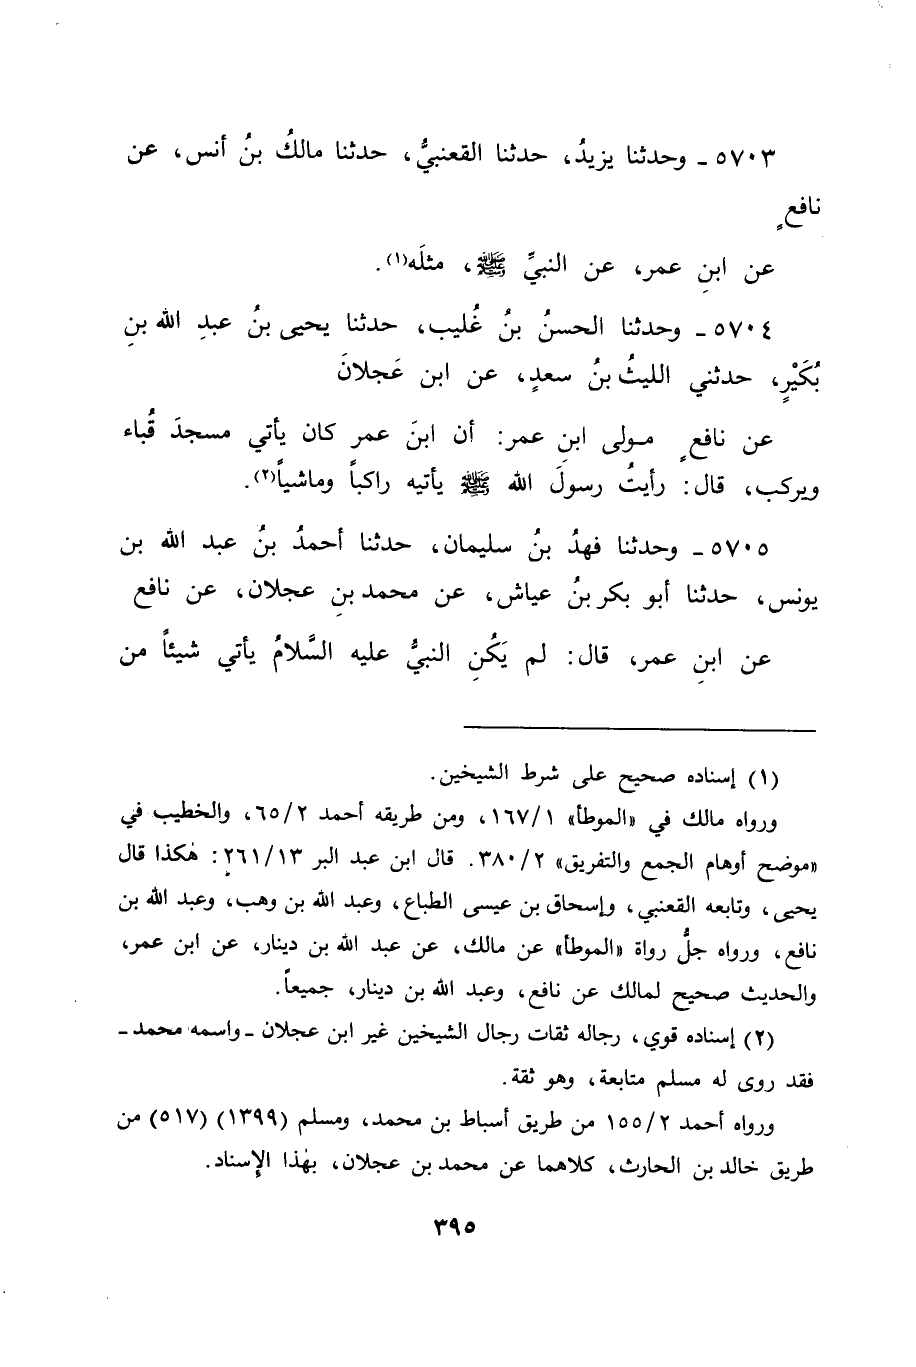 ٥٧٠٣ ـ وحدثنا يزيدُ، حدثنا القعنبيُّ، حدثنا مالكُ بنُ أنس، عن
نافعٍ
عن ابنِ عمر، عن النبيِّ ﷺ، مثلَه(١).
٥٧٠٤ ـ وحدثنا الحسنُ بنُ غُليب، حدثنا يحيى بنُ عبدِ الله بنِ
بُكَيْرٍ، حدثني الليثُ بنُ سعدٍ، عن ابن عَجلانَ
عن نافعٍ مولى ابنِ عمر: أن ابنَ عمر كان يأتي مسجدَ قُباء
ويركب، قال: رأيتُ رسولَ الله ﷺ يأتيه راكباً وماشياً(٢).
٥٧٠٥ ـ وحدثنا فهدُ بنُ سليمان، حدثنا أحمدُ بنُ عبد الله بن
يونس، حدثنا أبو بكر بنُ عياش، عن محمد بنِ عجلان، عن نافع
عن ابنِ عمر، قال: لم يَكُنِ النبيُّ عليه السَّلامُ يأتي شيئاً من
(١) إسناده صحيح على شرط الشيخين.
ورواه مالك في «الموطأ» ١/١٦٧، ومن طريقه أحمد ٢/٦٥، والخطيب في
«موضح أوهام الجمع والتفريق» ٢/٣٨٠. قال ابن عبد البر ١٣/٢٦١: هٰكذا قال
يحيى، وتابعه القعنبي، وإسحاق بن عيسى الطباع، وعبد الله بن وهب، وعبد الله بن
نافع، ورواه جلُّ رواة «الموطأ» عن مالك، عن عبد الله بن دينار، عن ابن عمر،
والحديث صحيح لمالك عن نافع، وعبد الله بن دينار، جميعاً.
(٢) إسناده قوي، رجاله ثقات رجال الشيخين غير ابن عجلان ـ واسمه محمد ـ
فقد روى له مسلم متابعة، وهو ثقة.
ورواه أحمد ٢/١٥٥ من طريق أسباط بن محمد، ومسلم (١٣٩٩) (٥١٧) من
طريق خالد بن الحارث، كلاهما عن محمد بن عجلان، بهٰذا الإسناد.
٣٩٥